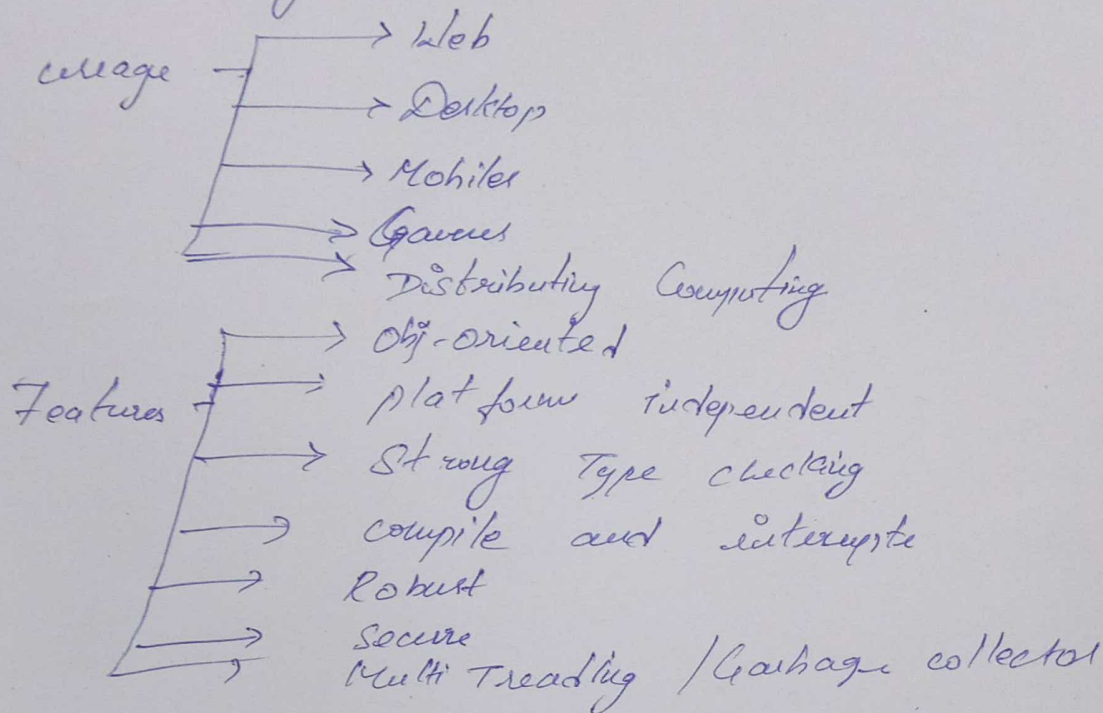 Usage
Web
Desktop
Mobiles
Games
Distributing Computing
Features
Obj-oriented
platform independent
Strong Type checking
compile and interupte
Robust
Secure
Multi Treading / Garbage collector